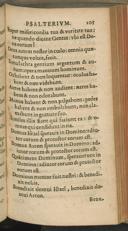 PSALTERIVM. 105
super misericordia tua & veritate tua:
ne quando dicant Gentes: vbi est De-
us eorum?
Deus autem noster in cælo: omnia quæ-
cunque voluit, fecit.
Simulachra gentium argentum & au-
rum: opera manuum hominum.
Os habent & non loquentur: oculos ha-
bent & non videbunt.
Aures habent & non audient: nares ha-
bent & non odorabunt.
Manus habent & non palpabunt: pedes
habent & non ambulabunt, non cla-
mabunt in gutture suo.
Similes illis fiant qui faciunt ea: &
omnes qui confidunt in eis.
Domus Israel sperauit in Domino: adiu-
tor eorum & protector eorum est.
Domus Aaron sperauit in Domino: ad-
iutor eorum & protector eorum est.
Qui timent Dominum, sperauerunt in
Domino: adiutor eorum & protector
eorum est.
Dominus memor fuit nostri: & bene-
dixit nobis.
Benedixit domui Israel, benedixit do-
mui Aaron.
Bene-